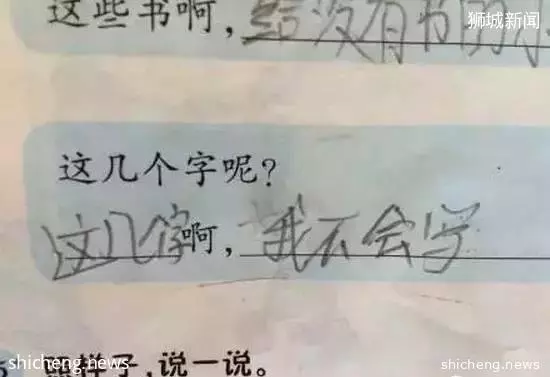 狮城新闻
这些书啊,给没有书的
这几个字呢?
这几个字啊,我不会写
样子,说一说。
shicheng.news
shicheng.news